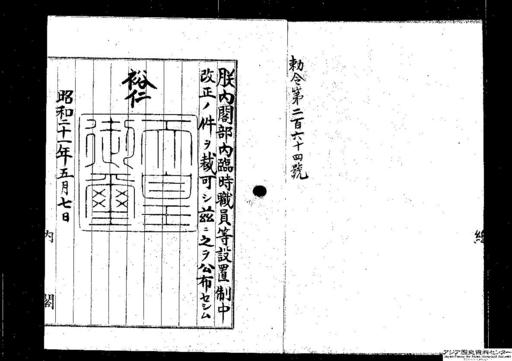 勅令第二百六十四號
朕内閣部内臨時職員等設置制中
改正ノ件ヲ裁可シ茲ニ之ヲ公布セシム
裕仁
天皇御璽
昭和二十一年五月七日
内閣
アジア歴史資料センター